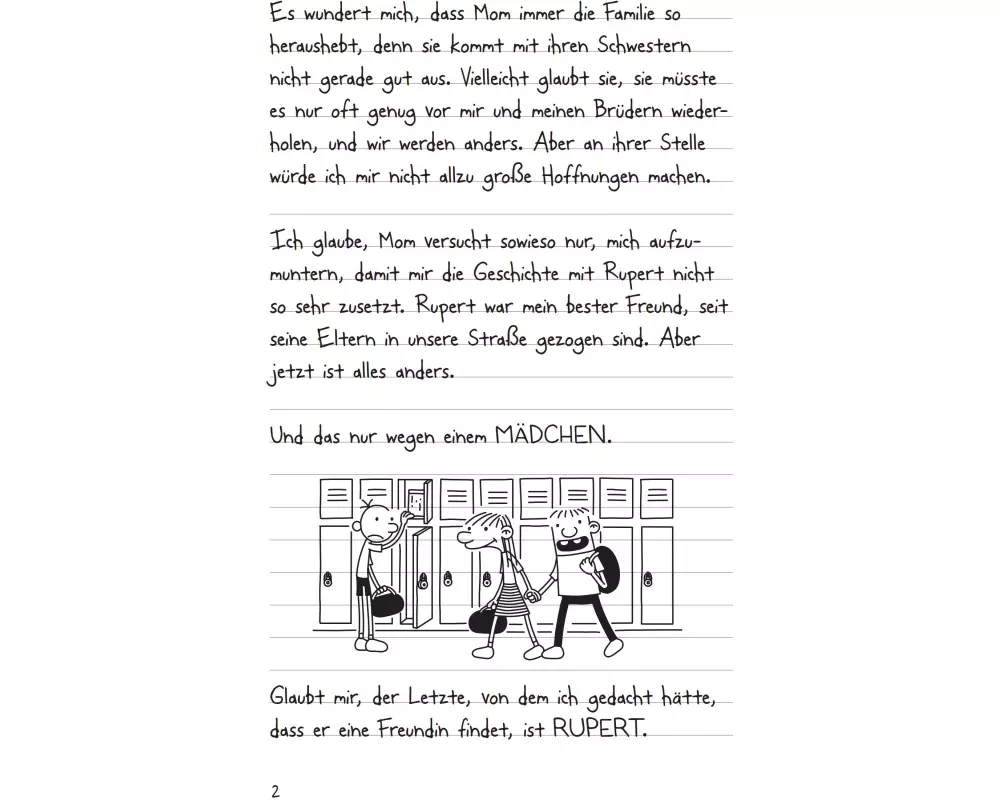 Es wundert mich, dass Mom immer die Familie so
heraushebt, denn sie kommt mit ihren Schwestern
nicht gerade gut aus. Vielleicht glaubt sie, sie müsste
es nur oft genug vor mir und meinen Brüdern wieder-
holen, und wir werden anders. Aber an ihrer Stelle
würde ich mir nicht allzu große Hoffnungen machen.
Ich glaube, Mom versucht sowieso nur, mich aufzu-
muntern, damit mir die Geschichte mit Rupert nicht
so sehr zusetzt. Rupert war mein bester Freund, seit
seine Eltern in unsere Straße gezogen sind. Aber
jetzt ist alles anders.
Und das nur wegen einem MÄDCHEN.
Glaubt mir, der Letzte, von dem ich gedacht hätte,
dass er eine Freundin findet, ist RUPERT.
2